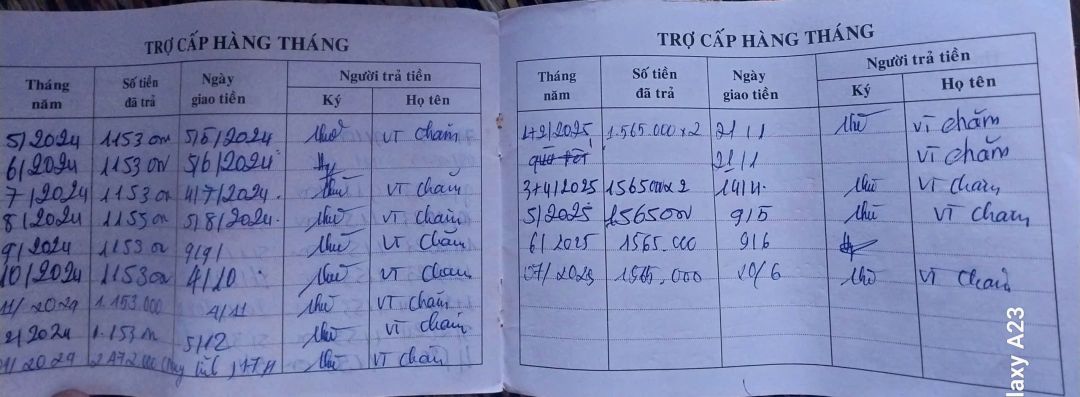 TRỢ CẤP HÀNG THÁNG
Tháng năm Số tiền đã trả Ngày giao tiền Người trả tiền
Ký Họ tên
5/2024 1153 on 5/5/2024 thu VT chăm
6/2024 1153 on 5/6/2024
7/2024 1153 on 4/7/2024 thu VT chăm
8/2024 1153 on 5/8/2024 thu VT chăm
9/2024 1153 on 9/9/ thu VT chăm
10/2024 1153 on 4/10 thu VT chăm
11/2024 1.153.000 4/11 thu VT chăm
2/2024 1.153 on 5/12 thu VT chăm
2024 2472.000 thu VT chăm
TRỢ CẤP HÀNG THÁNG
Tháng năm Số tiền đã trả Ngày giao tiền Người trả tiền
Ký Họ tên
1+2/2025 1.565.000 x 2 21/1 thu vì chăm
quà tết 21/1 vì chăm
3+4/2025 1565on x 2 14/4 thu VT chăm
5/2025 1565on 9/5 thu VT cham
6/2025 1565.000 9/6
07/2025 1565.000 20/6 thu VT cham
laxy A23